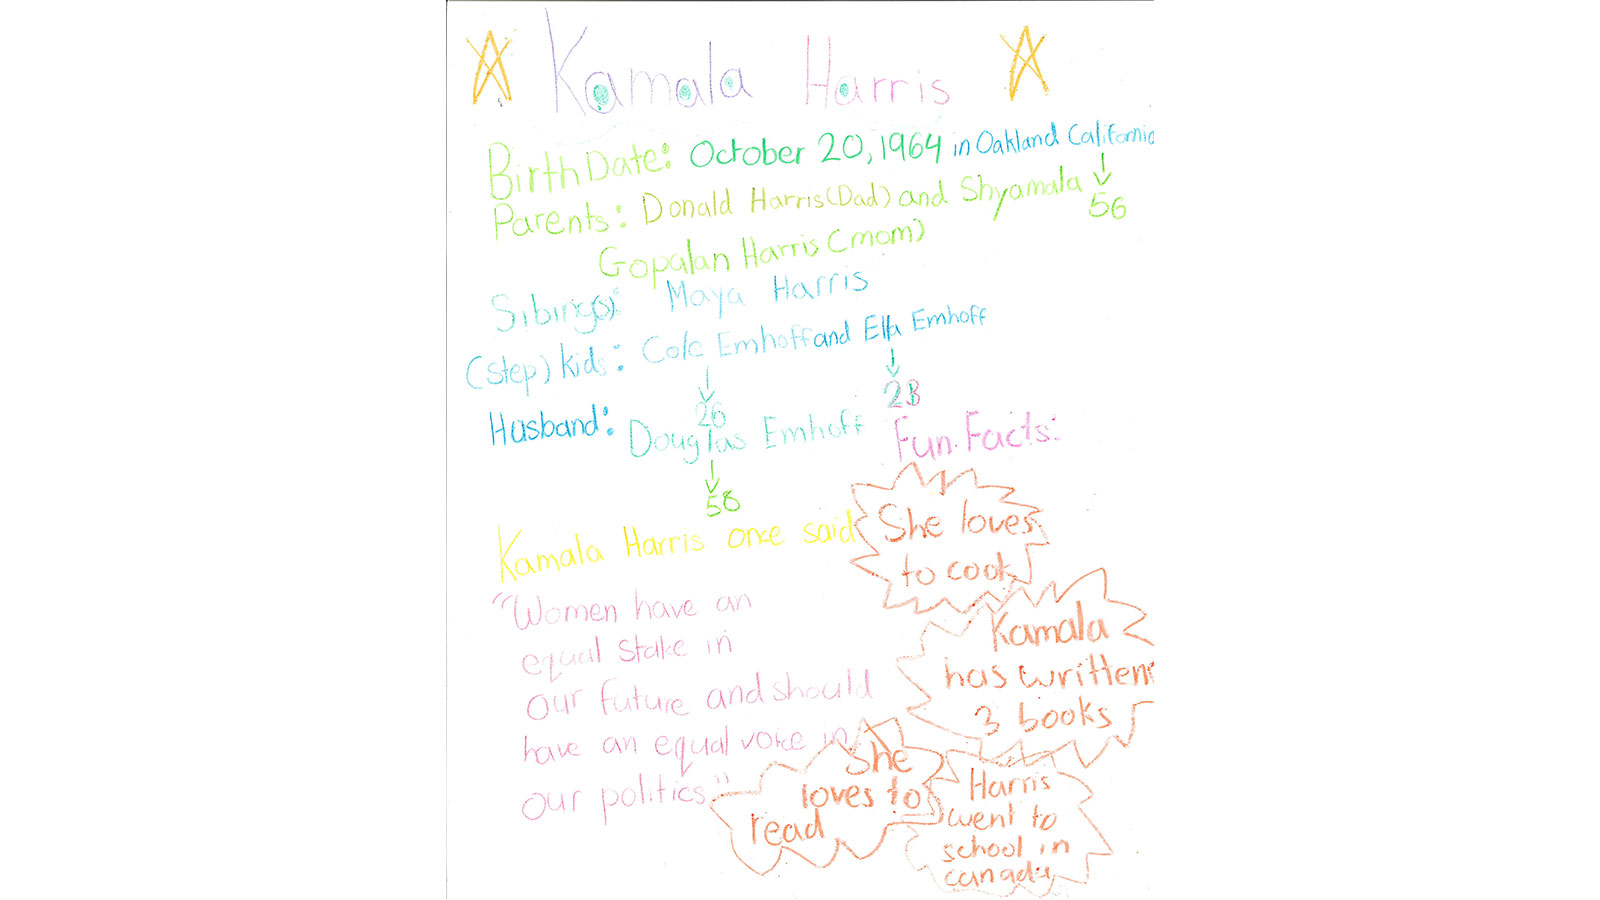 Kamala Harris
BirthDate: October 20, 1964 in Oakland California
56
Parents: Donald Harris (Dad) and Shyamala
Gopalan Harris (mom)
Sibing(s): Maya Harris
(step) kids: Cole Emhoff and Ella Emhoff
26
23
Husband: Douglas Emhoff
56
Kamala Harris once said
"Women have an
equal stake in
our future and should
have an equal voice in
our politics"
Fun Facts:
She loves
to cook
Kamala
has written
3 books
She
loves to
read
Harris
went to
school in
canada